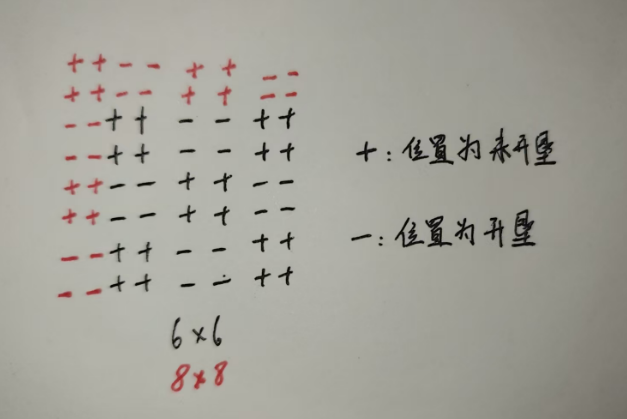 ++-- ++ --
++-- ++ --
--++ -- ++
--++ -- ++ +：位置为未开垦
++-- ++ --
++-- ++ -- -：位置为开垦
--++ -- ++
--++ -- ++
6×6
8×8